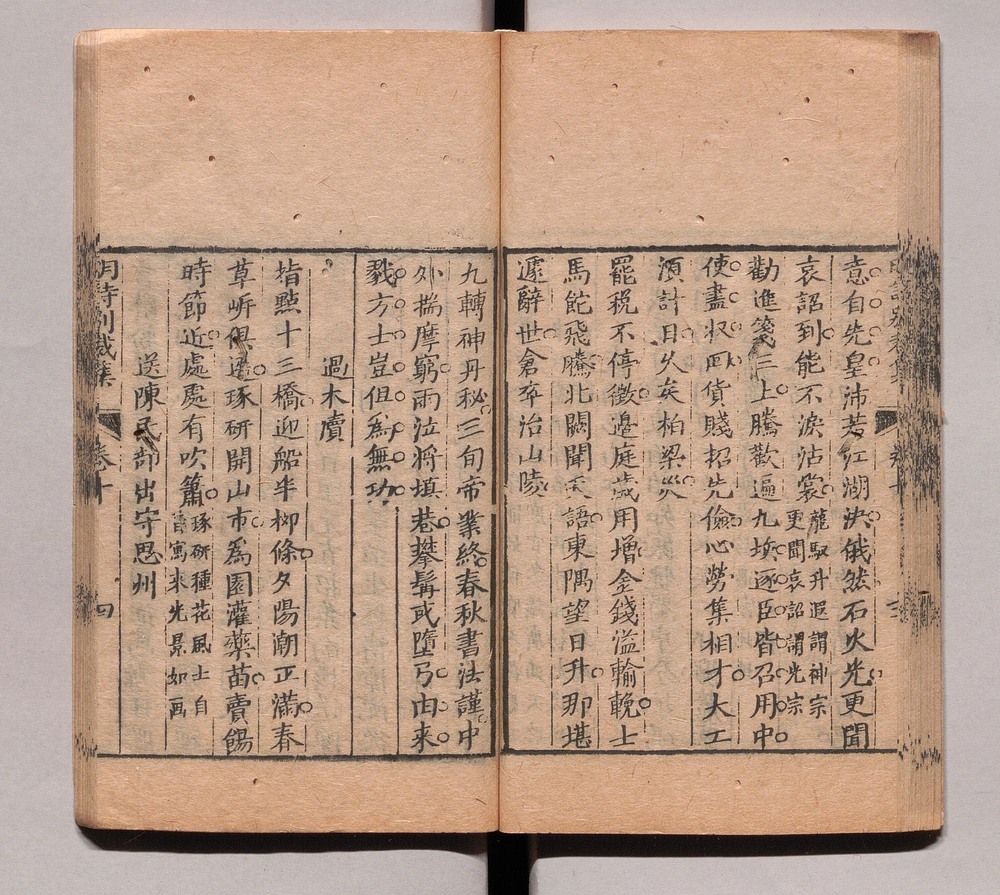 意自先皇沛芳紅湖決俄然石火光更聞
哀詔到能不淚沾裳龍馭升遐謂神宗
更聞哀詔謂光宗
勸進箋三上騰歡遍九垓逐臣皆召用中
使盡收回貨賤招先儉心勞集相才大工
須計日久矣柏梁災
罷稅不停徵邊庭歲用增金錢溢輸輓士
馬飽飛騰北闕聞天語東隅望日升那堪
遽辭世倉卒治山陵
九轉神丹秘三旬帝業終春秋書法謹中
外揣摩窮雨泣將填巷攀髯或墮弓由来
戮方士豈但為無功
過木瀆
指點十三橋迎船半柳條夕陽潮正滿春
草岍俱遙琢研開山市為園灌藥苗賣餳
時節近處處有吹簫琢研種花風土自
昔寓来光景如画
送陳民部出守思州
明詩別裁集
卷十
四